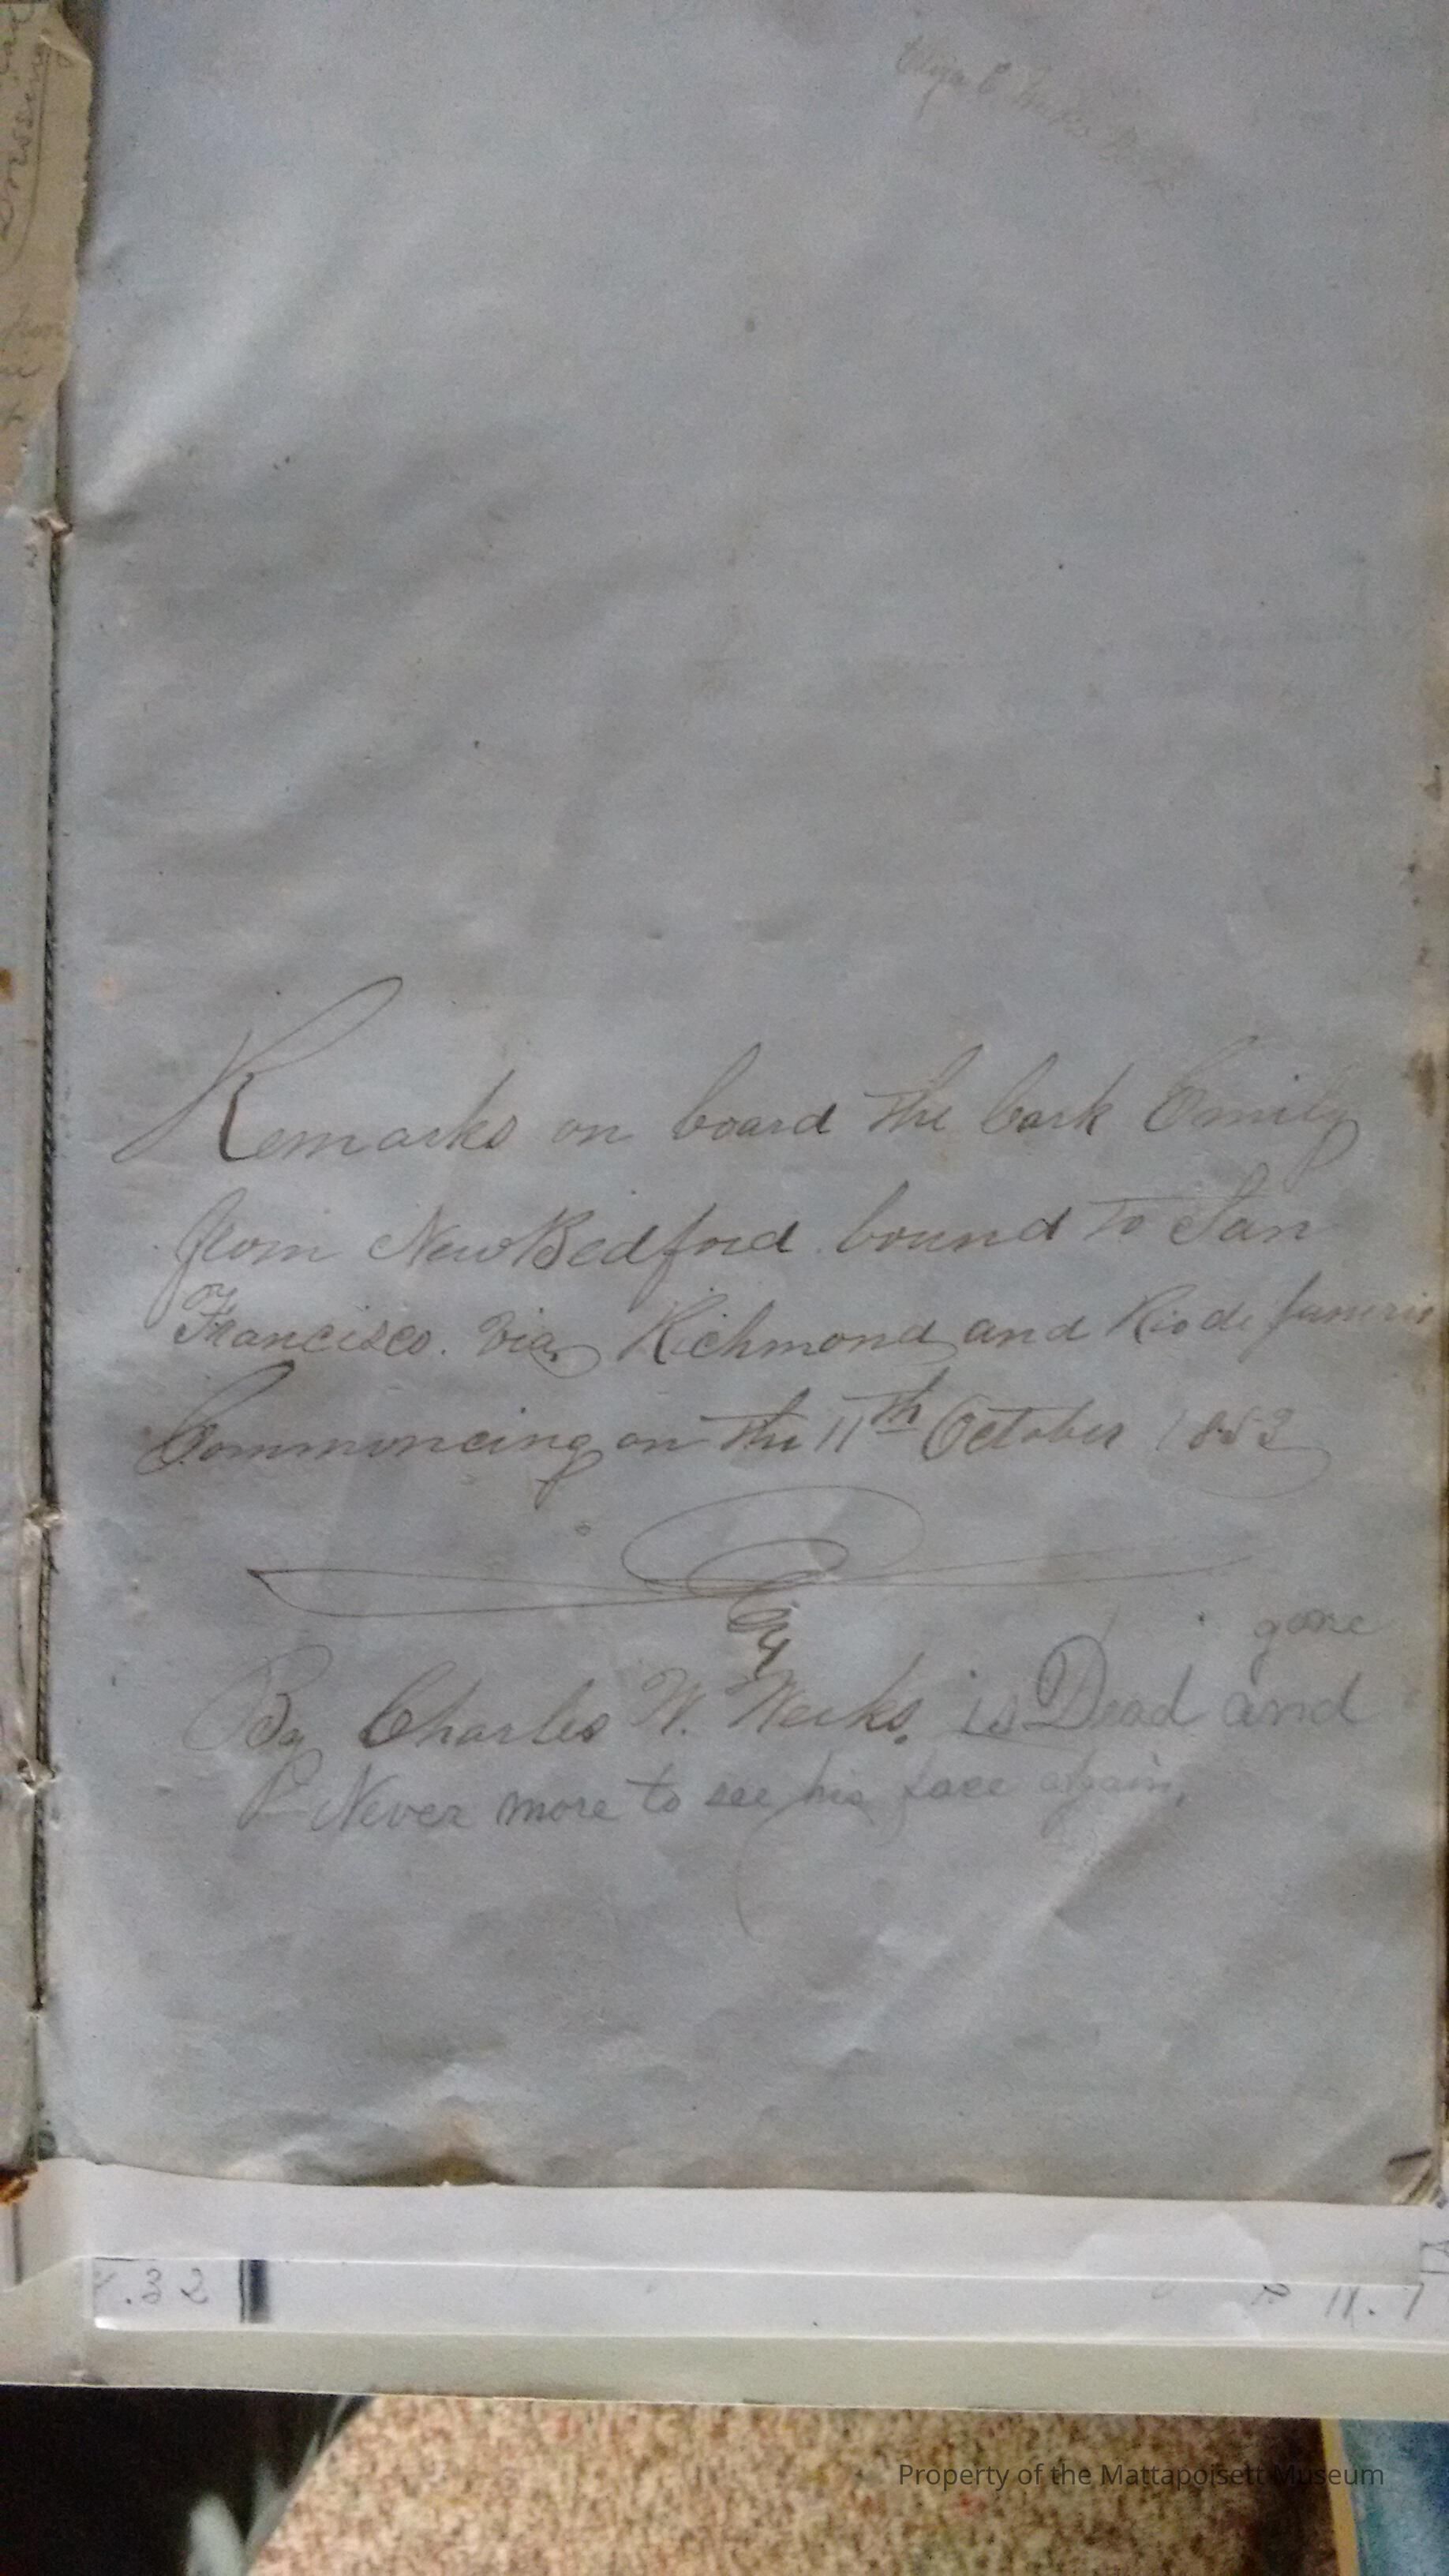 Remarks on board the bark Emily
from New Bedford bound to San
Francisco. via Richmond and Rio de Janerio
Commencing on the 11th October 1853
gone
By Charles W. Weeks. is Dead and
Never more to see his face again,
.32
11.7
Property of the Mattapoisett Museum